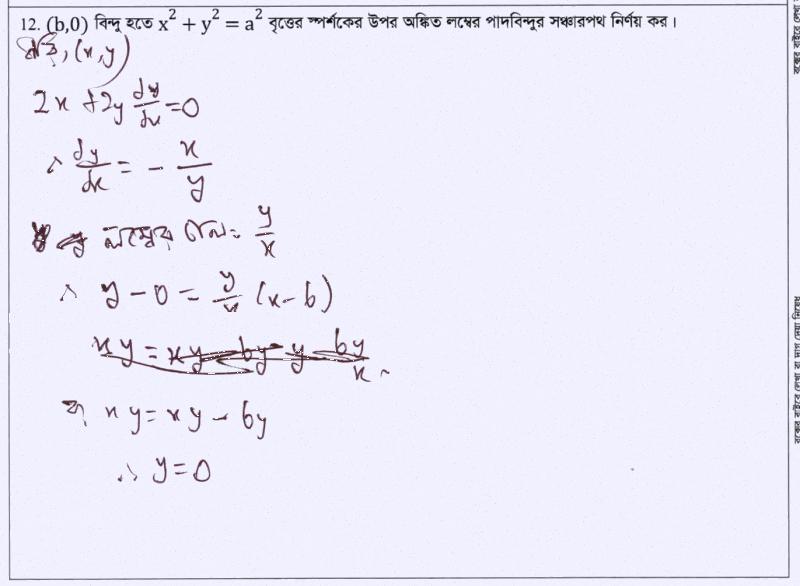 12. (b,0) বিন্দু হতে x² + y² = a² বৃত্তের স্পর্শকের উপর অঙ্কিত লম্বের পাদবিন্দুর সঞ্চারপথ নির্ণয় কর।
ধরি, (x,y)
2x + 2y dy/dx = 0
∴ dy/dx = - x/y
লম্বের ঢাল = y/x
∴ y - 0 = y/x (x - b)
xy = xy - by
বা, xy = xy - by
∴ y = 0